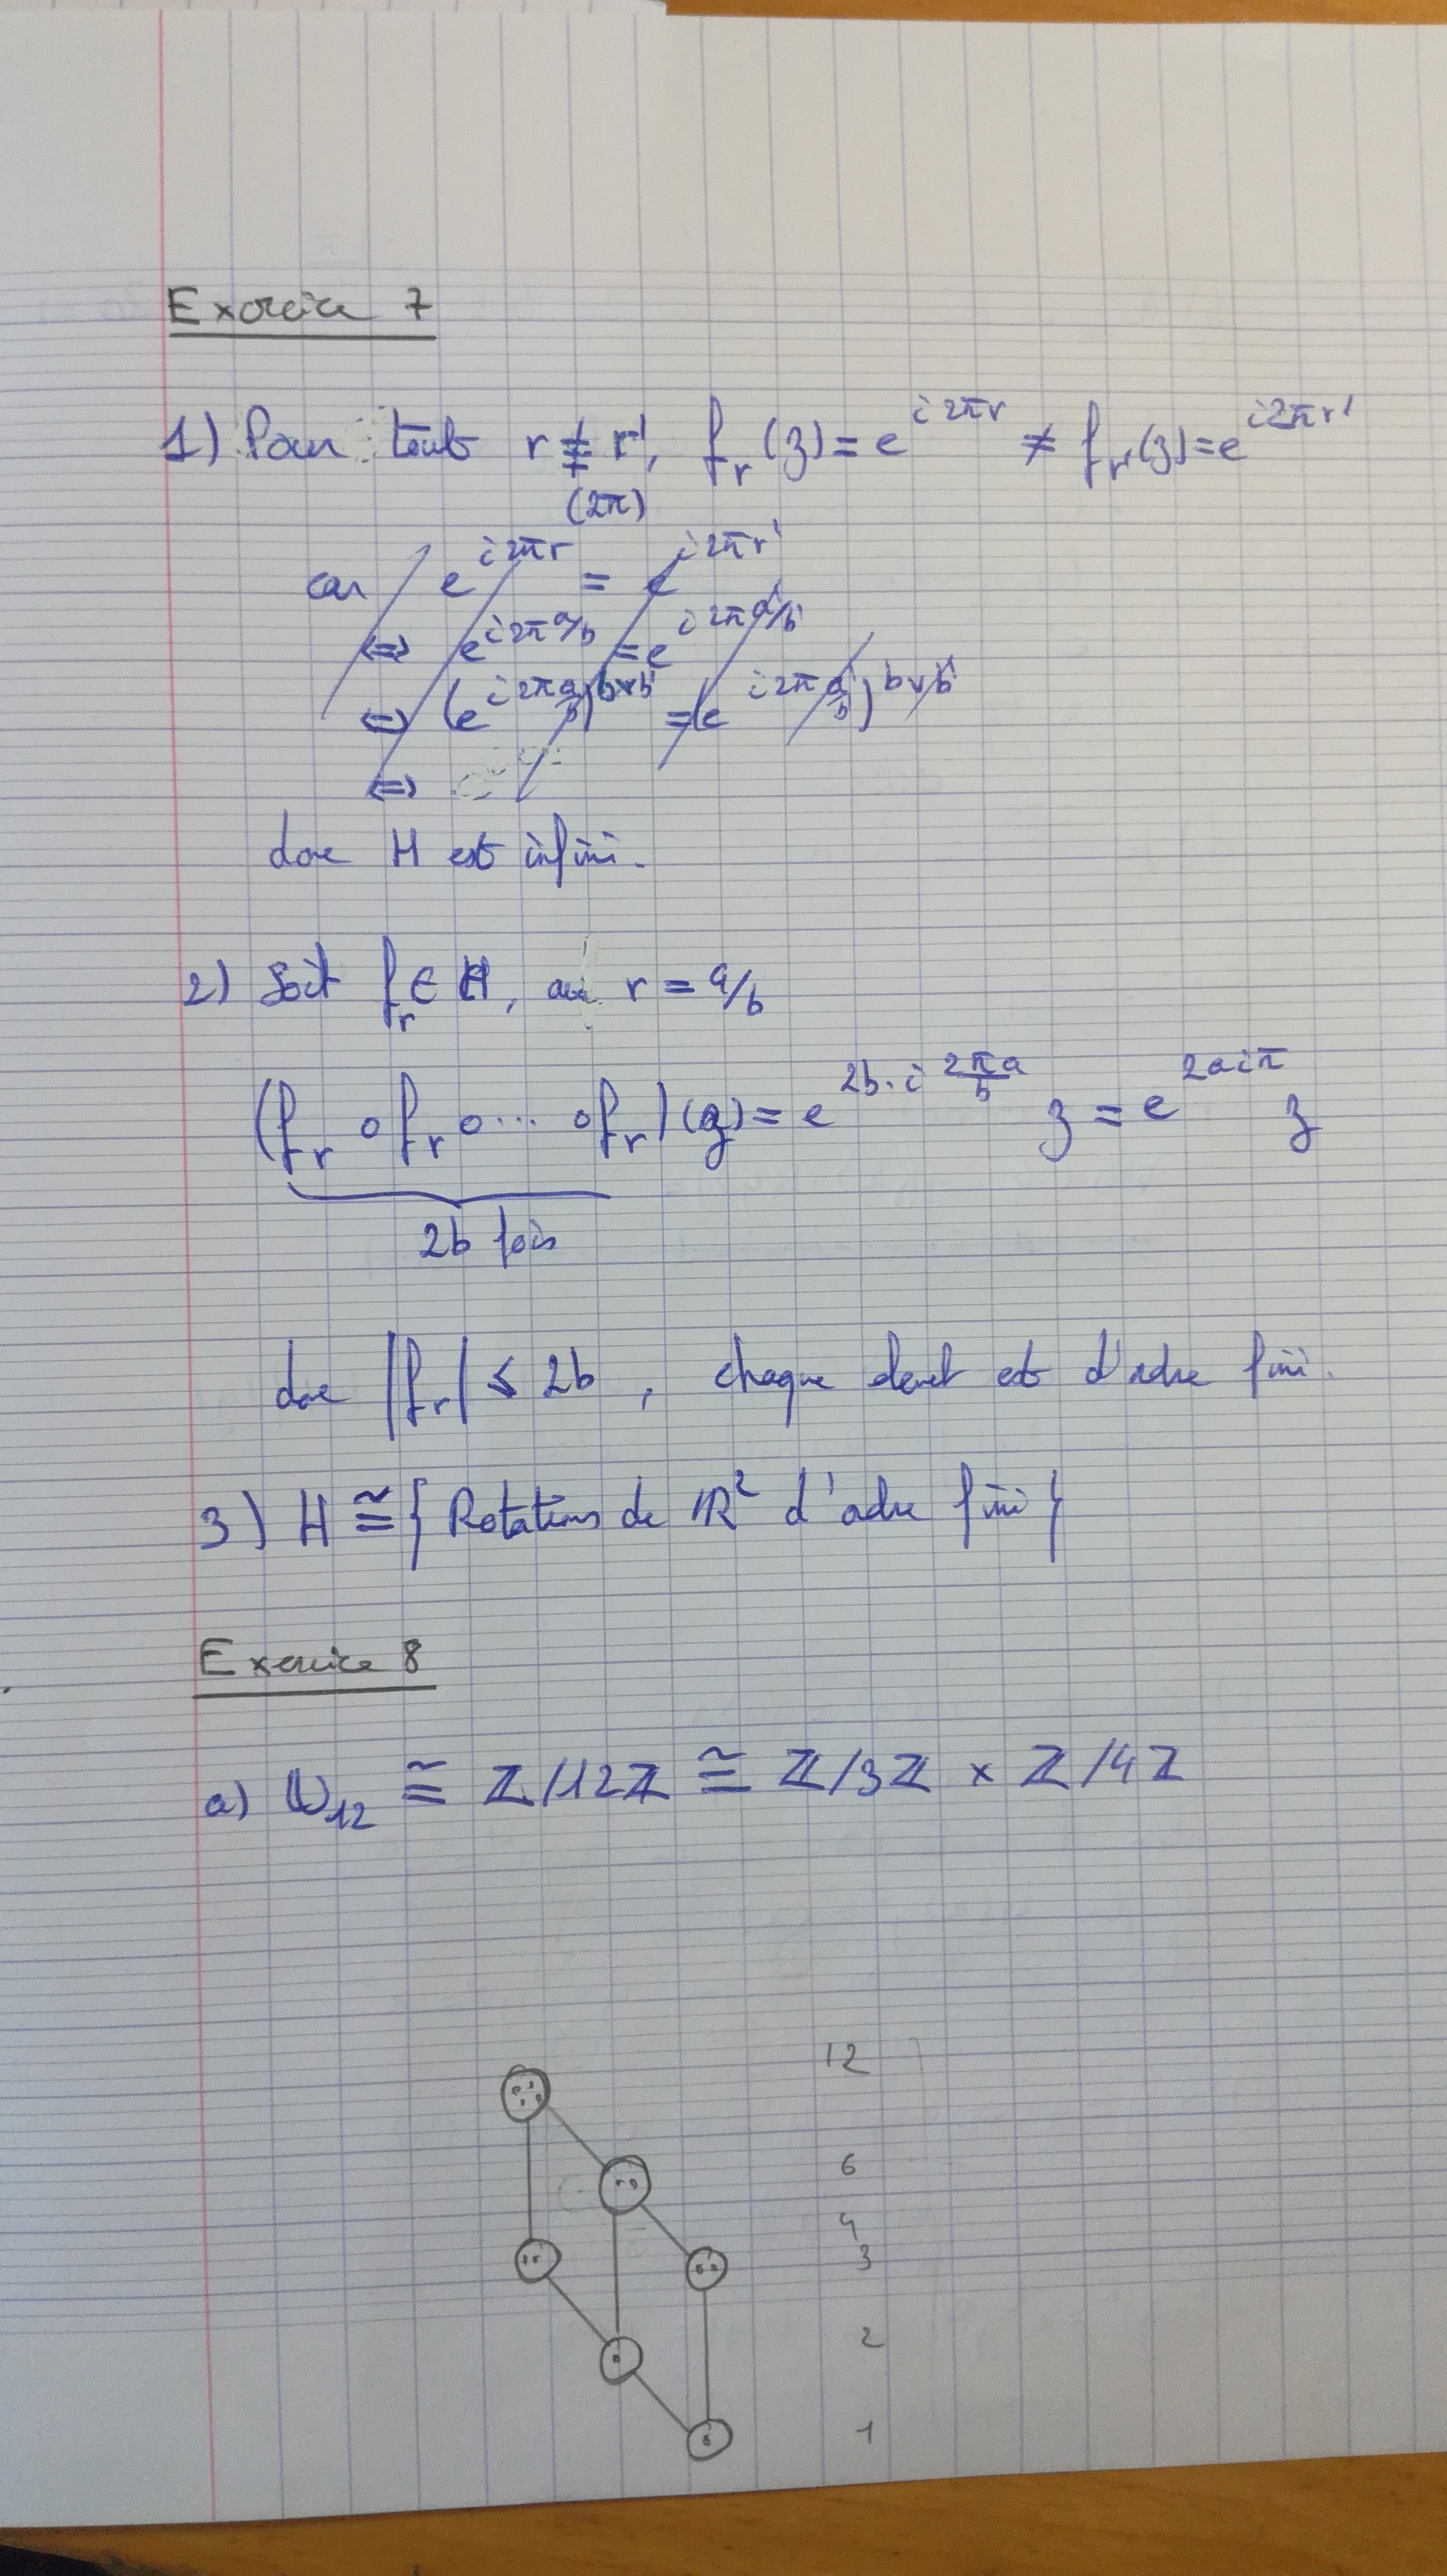 Exercice 7
1) Pour tout r ≢ r', f_r(z) = e^{i2πr} ≠ f_r'(z) = e^{i2πr'}
(2π)
car e^{i2πr} = e^{i2πr'}
⇔ e^{i2πa/b} = e^{i2πa'/b'}
⇔ (e^{i2πa/b})^{b×b'} = (e^{i2πa'/b})^{b×b'}
⇔
donc H est infini.
2) Soit f_r ∈ H, r = a/b
(f_r ∘ f_r ∘ ... ∘ f_r)(z) = e^{2b·i 2πa/b} z = e^{2aiπ} z
2b fois
donc |f_r| ≤ 2b, chaque élemt est d'ordre fini.
3) H ≅ { Rotations de ℝ² d'ordre fini }
Exercice 8
a) U_12 ≅ ℤ/12ℤ ≅ ℤ/3ℤ × ℤ/4ℤ
12
6
4
3
2
1